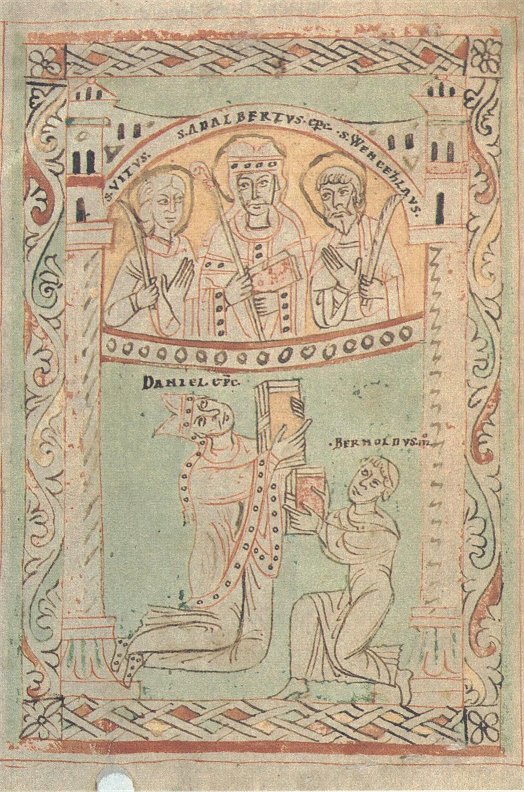 S. VITVS. S. ADALBERTVS. EPC. S. WENCEZLAVS.
DANIEL EPC.
.BERNOLDVS.